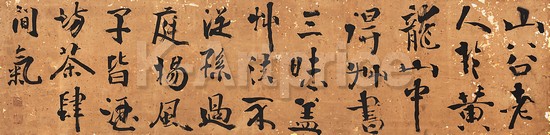 山谷老
人於黃
龍山中
得艸書
三昧蓋
艸法不
從孫過
庭揚風
子皆酒
坊茶肆
間氣